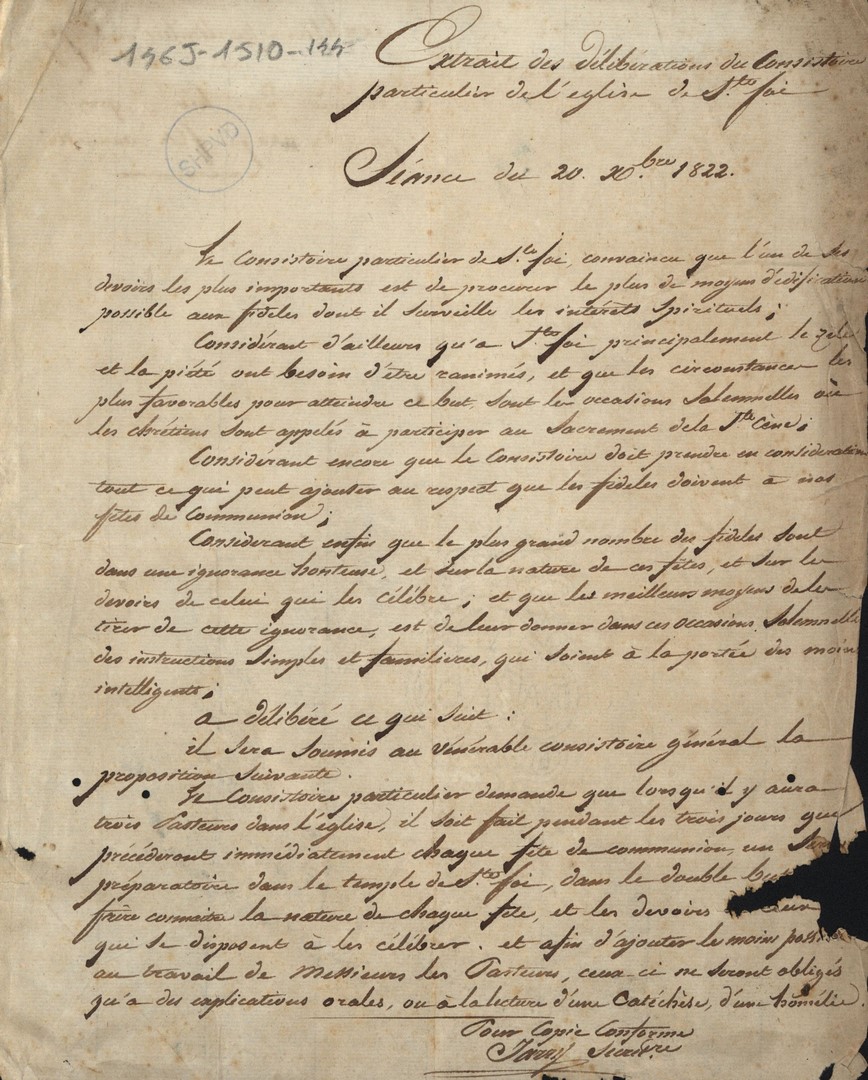 1465-1510-144
SHPVD
Extrait des délibérations du Consistoire
particulier de l'eglise de S.te foi
Séance du 20. X.bre 1822.
Le Consistoire particulier de S.te foi, convaincu que l'un de ses
devoirs les plus importants est de procurer le plus de moyens d'édification
possible aux fideles dont il surveille les intérêts spirituels;
Considérant d'ailleurs qu'a S.te foi principalement le zele
et la piété ont besoin d'être ranimés, et que les circonstances les
plus favorables pour atteindre ce but, sont les occasions solemnelles où
les chrétiens sont appelés à participer au Sacrement dela S.te Cène;
Considérant encore que le Consistoire doit prendre en consideration
tout ce qui peut ajouter au respect que les fideles doivent à nos
fêtes de Communion;
Considerant enfin que le plus grand nombre des fideles sont
dans une ignorance honteuse, et sur la nature de ces fêtes, et sur les
devoirs de celui qui les célèbre; et que les meilleurs moyens deles
tirer de cette ignorance, est de leur donner dans ces occasions Solemnelles
des instructions simples et familières, qui soient à la portée des moins
intelligents;
a délibéré ce qui suit:
il sera soumis au vénérable consistoire général la
proposition suivante.
Le Consistoire particulier demande que lorsqu'il y aura
trois Pasteurs dans l'église, il soit fait pendant les trois jours que
précéderont immédiatement chaque fête de communion, un
préparatoire dans le temple de S.te foi, dans le double but
connaitre la nature de chaque fête, et les devoirs ceux
qui se disposent à les célébrer. et afin d'ajouter le moins possi
au travail de Messieurs les Pasteurs, ceux ci ne seront obligés
qu'a des explications orales, ou à la lecture d'une Catéchèse, d'une homélie.
Pour Copie Conforme
Secre.re